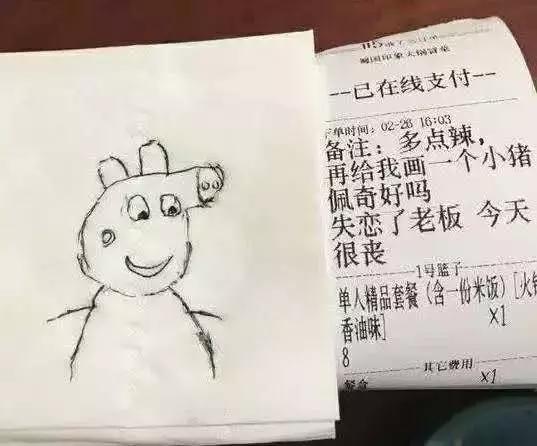 --已在线支付--
下单时间: 02-26 16:03
备注: 多点辣,
再给我画一个小猪
佩奇好吗
失恋了老板 今天
很丧
1号篮子
单人精品套餐(含一份米饭)[火锅
香油味]
X1
8
其它费用
餐盒
X1